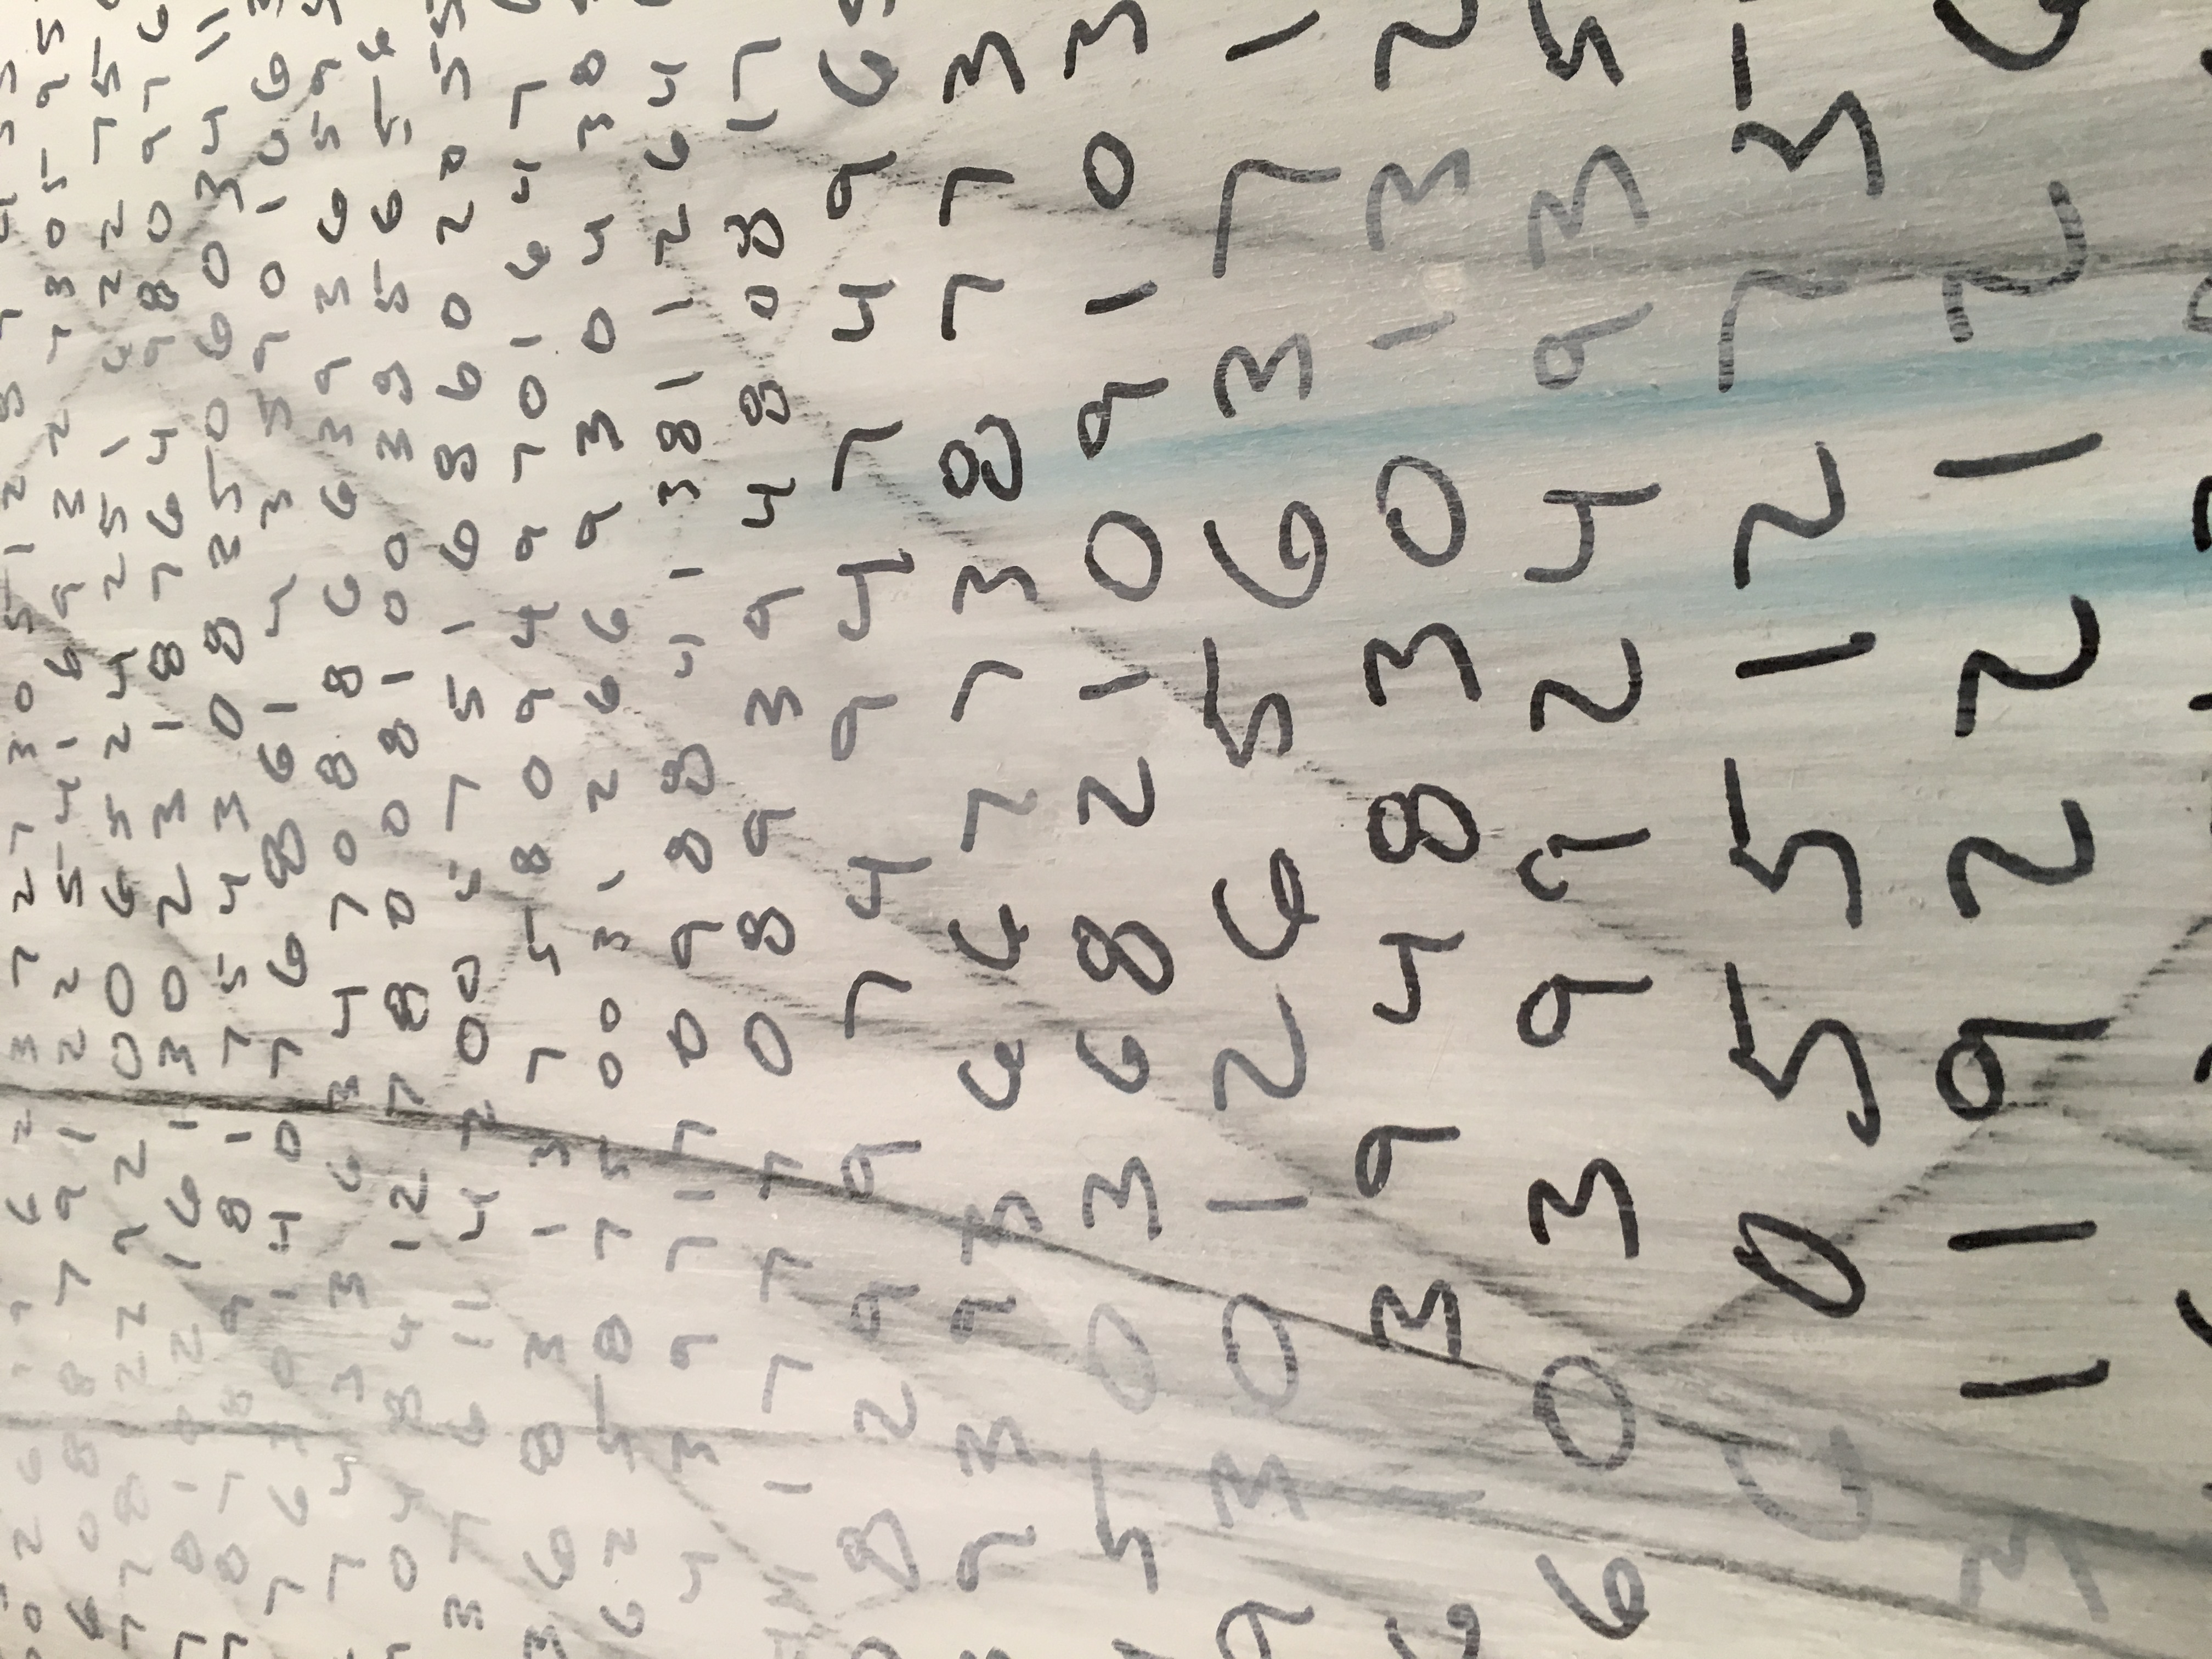 0 2 6 9 6 2 3 7 2 7 3 0 5 1 2 8 7 4 5 5
6 0 8 8 7 9 1 2 2 5 4 1 6 9 3 2 7 3 0 5 9 5
7 7 8 1 2 2 9 2 0 0 6 5 2 4 2 5 1 6 2 2 7 5
7 8 1 0 2 1 6 1 3 0 2 3 1 8 7 6 4 9 8 0 9 7 6
7 8 7 8 9 8 1 7 5 4 3 0 8 3 5 0 6 0 3 4 1 1
7 6 3 9 1 4 0 7 6 8 6 1 4 3 5 9 0 1 0 6 3
7 4 3 3 6 3 4 7 0 8 8 6 6 3 9 3 6 5 9
0 4 8 4 1 2 7 8 0 0 8 1 0 0 3 8 5 6 5 6
3 7 6 1 1 4 2 0 0 5 7 5 1 6 8 6 0 2 0 5 5
3 6 8 3 1 3 7 5 8 0 9 4 9 7 0 1 6 4 7
6 2 5 8 7 5 0 0 3 1 2 6 6 9 3 0 4 3 8
4 3 9 7 1 7 0 9 8 8 4 1 3 8 1 1 2 6 4
4 1 7 7 7 0 8 9 3 9 4 8 0 8 1 7
8 2 9 9 7 4 9 4 7 4 9 6
9 3 9 3 6 6 7 7 3 8 7 7 3
5 0 3 6 8 2 1 0 9 1 0 3
9 3 0 1 2 6 5 6 3 7 1
6 1 3 9 4 8 3 0 1 3 2
6 0 3 9 9 2 4 9 3 5
6 0 5 5 1 2 7 5
3 1 1 9 2 2 1 2 6